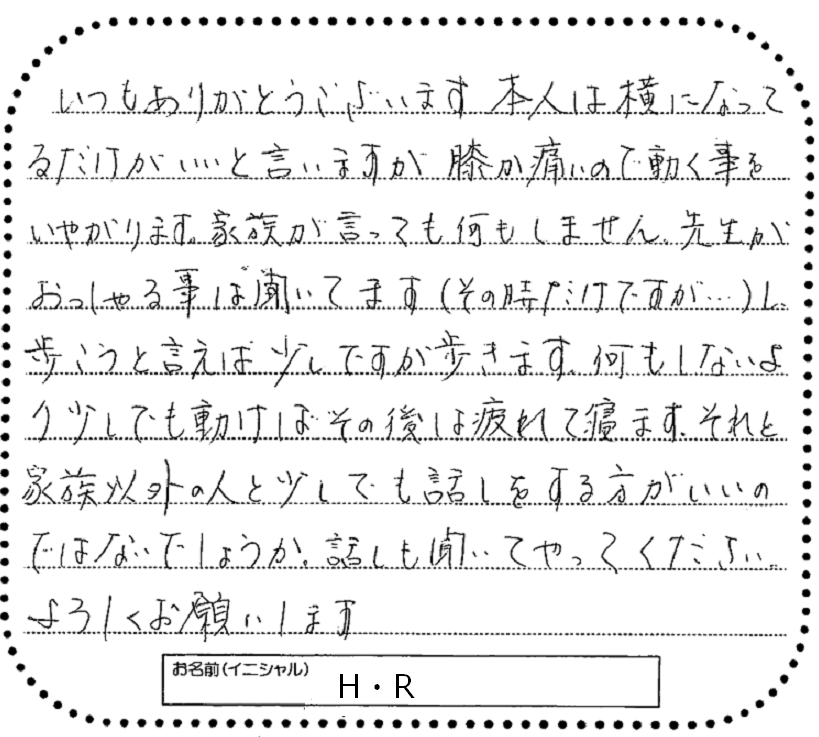 いつもありがとうございます 本人は横になって
るだけがいいと言いますが 膝が痛いので動く事を
いやがります。家族が言っても何もしません。先生が
おっしゃる事は聞いてます(その時だけですが…)し、
歩こうと言えば少しですが歩きます。何もしないよ
り少しでも動けばその後は疲れて寝ます。それと
家族以外の人と少しでも話しをする方がいいの
ではないでしょうか。話しも聞いてやってください。
よろしくお願いします
お名前(イニシャル)
H・R